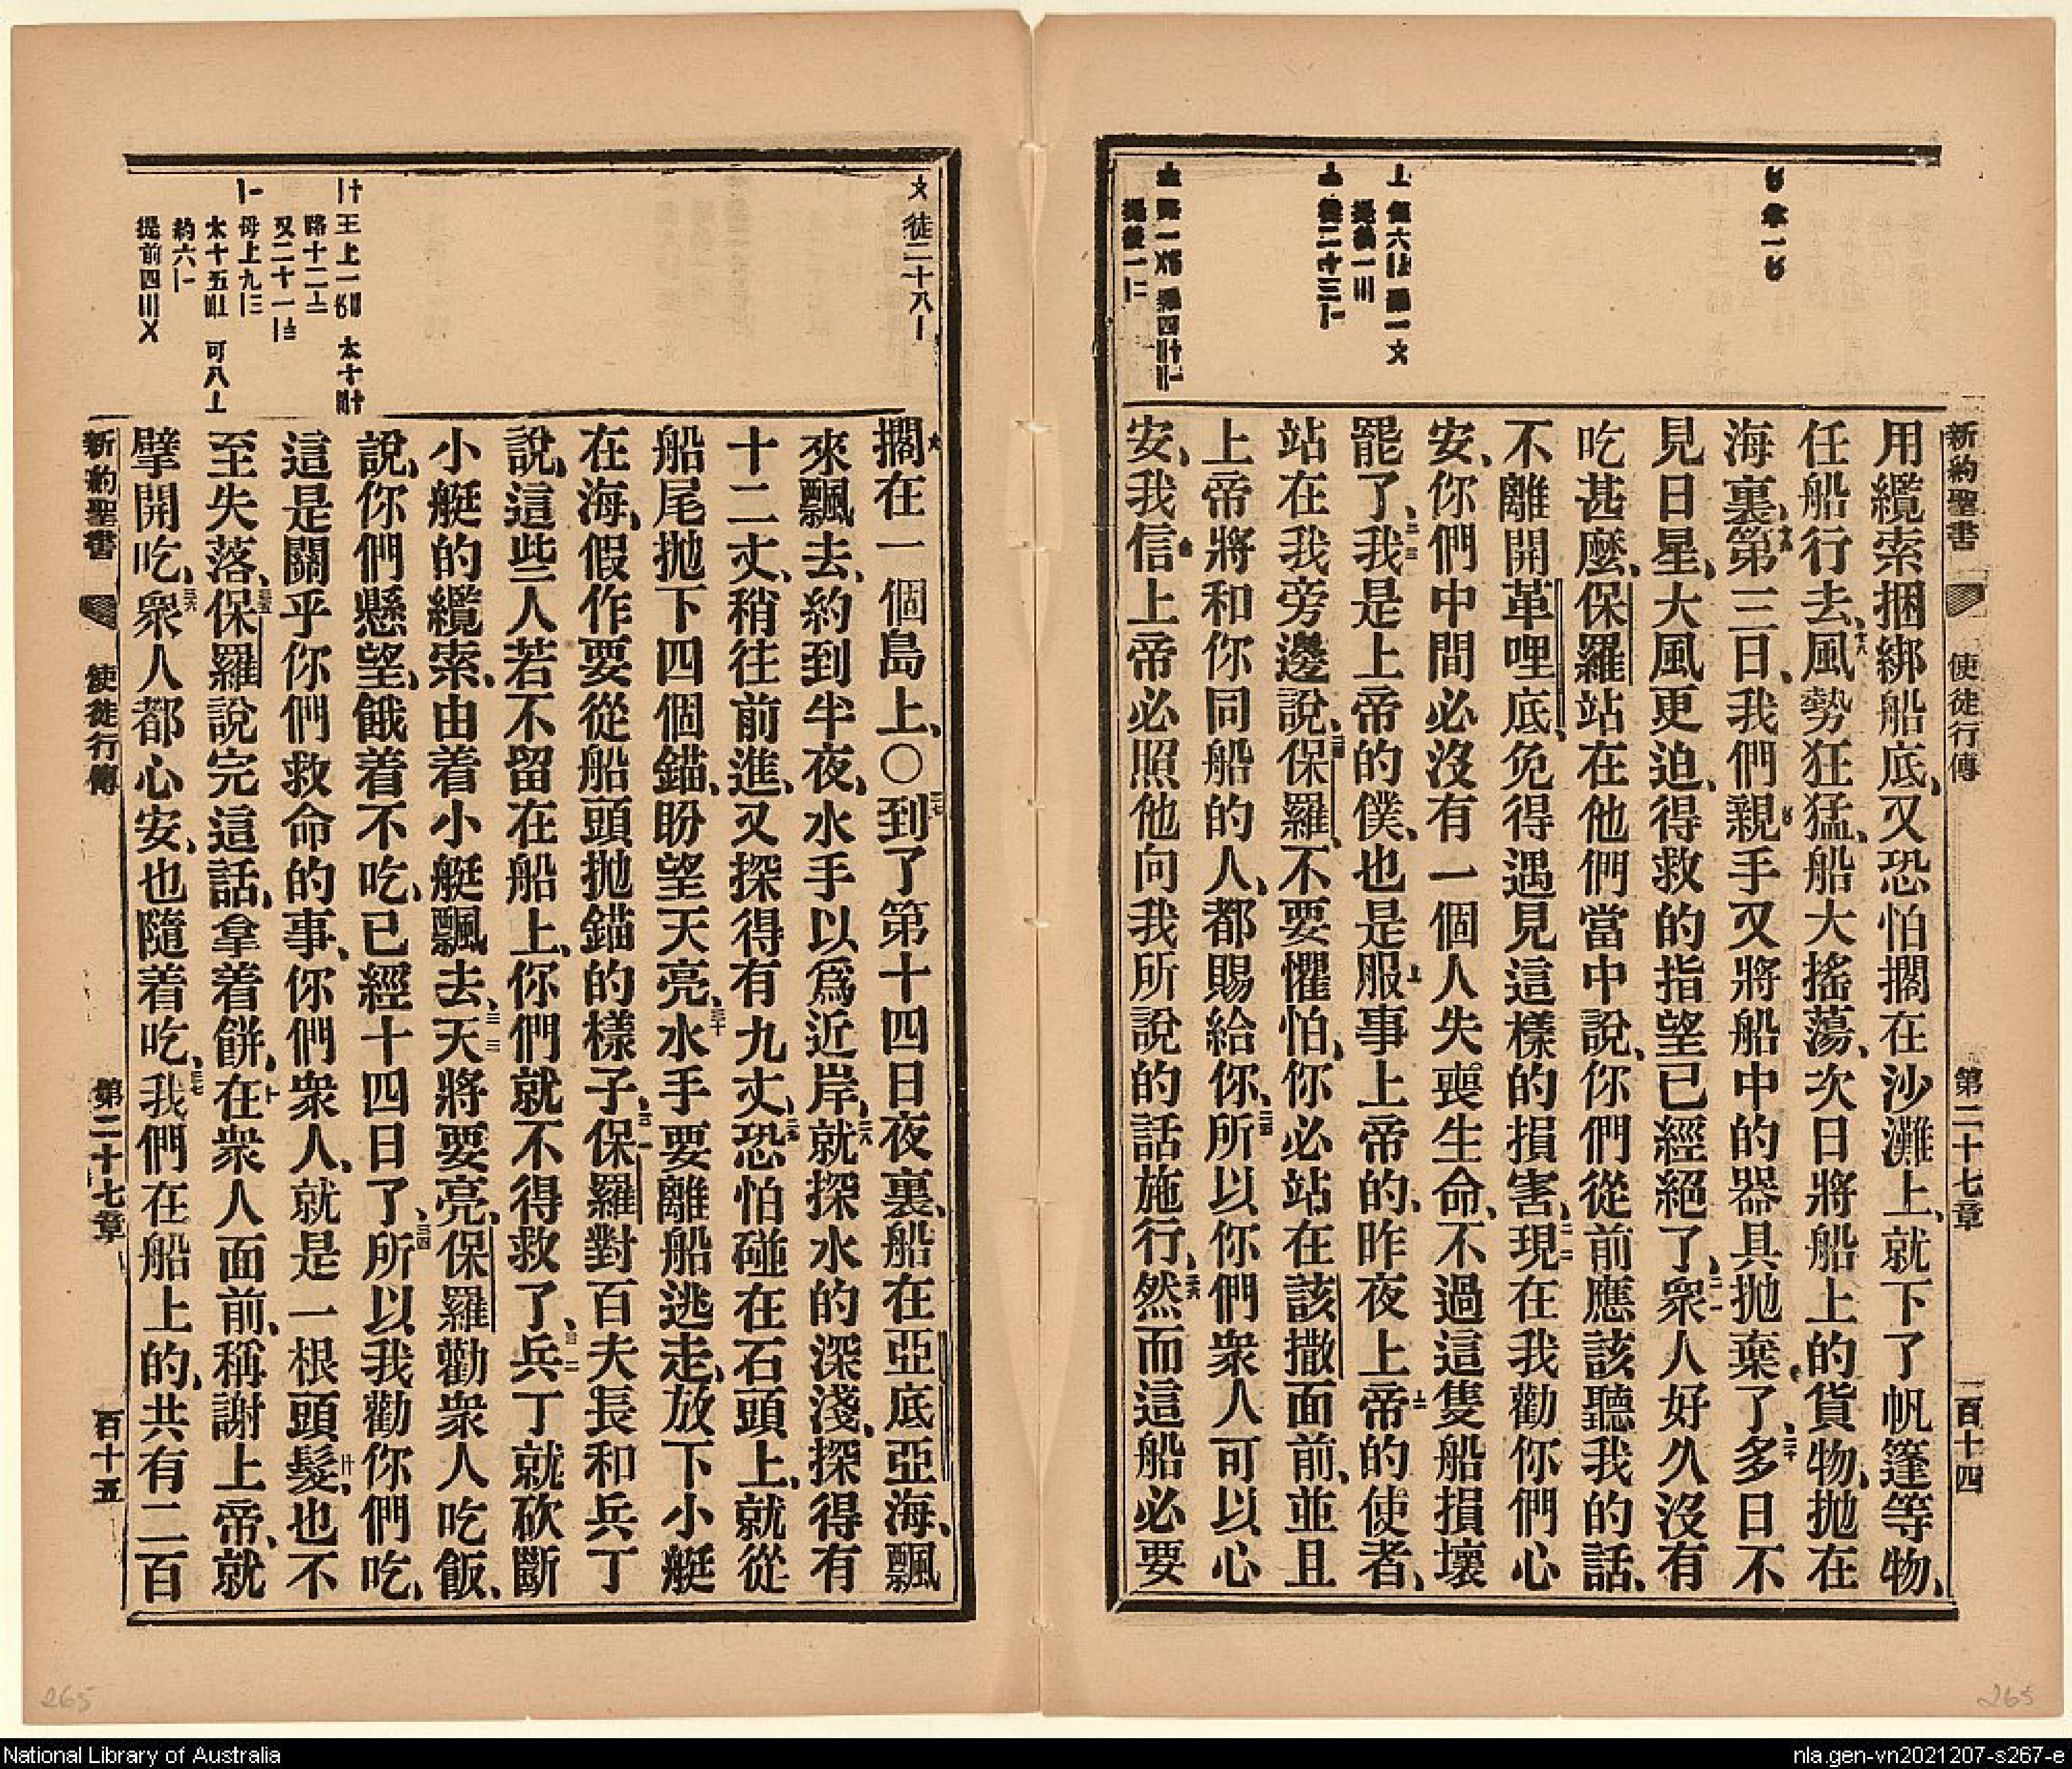 新約聖書 使徒行傳 第二十七章 一百十四
用纜索捆綁船底、又恐怕擱在沙灘上、就下了帆篷等物、
任船行去、十八風勢狂猛、船大搖蕩、次日將船上的貨物、抛在
海裏、十九第三日、我們親手又將船中的器具抛棄了、二十多日不
見日星、大風更迫、得救的指望已經絕了、二一衆人好久沒有
吃甚麼、保羅站在他們當中說、你們從前應該聽我的話、
不離開革哩底、免得遇見這樣的損害、二二現在我勸你們心
安、你們中間必沒有一個人失喪生命、不過這隻船損壞
罷了、二三我是上帝的僕、也是服事上帝的、昨夜上帝的使者、
站在我旁邊說、二四保羅、不要懼怕、你必站在該撒面前、並且
上帝將和你同船的人、都賜給你、二五所以你們衆人可以心
安、我信上帝必照他向我所說的話施行、二六然而這船必要
徒二十八〡
擱在一個島上、〇二七到了第十四日夜裏、船在亞底亞海、飄
來飄去、約到半夜、水手以爲近岸、二八就探水的深淺、探得有
十二丈、稍往前進、又探得有九丈、二九恐怕碰在石頭上、就從
船尾抛下四個錨、盼望天亮、三十水手要離船逃走、放下小艇
在海、假作要從船頭抛錨的樣子、三一保羅對百夫長和兵丁
說、這些人若不留在船上、你們就不得救了、三二兵丁就砍斷
小艇的纜索、由着小艇飄去、三三天將要亮、保羅勸衆人吃飯、
說、你們懸望、餓着不吃、已經十四日了、三四所以我勸你們吃、
這是關乎你們救命的事、你們衆人、就是一根頭髮、也不
至失落、三五保羅說完這話、拿着餅、在衆人面前、稱謝上帝、就
擘開吃、三六衆人都心安、也隨着吃、三七我們在船上的、共有二百
新約聖書 使徒行傳 第二十七章 百十五
265
265
National Library of Australia
nla.gen-vn2021207-s267-e